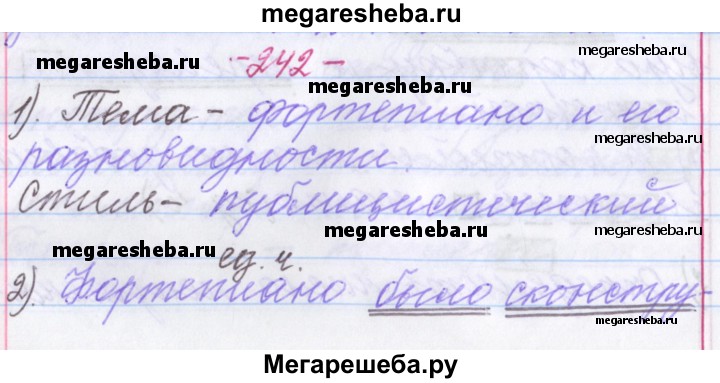 megaresheba.ru
-242-
megaresheba.ru
1). Тема - фортепиано и его
megaresheba.ru
разновидности.
Стиль- публицистический
megaresheba.ru
megaresheba.ru
ед. ч.
2). Фортепиано было сконстру-
megaresheba.ru
Мегарешеба.ру